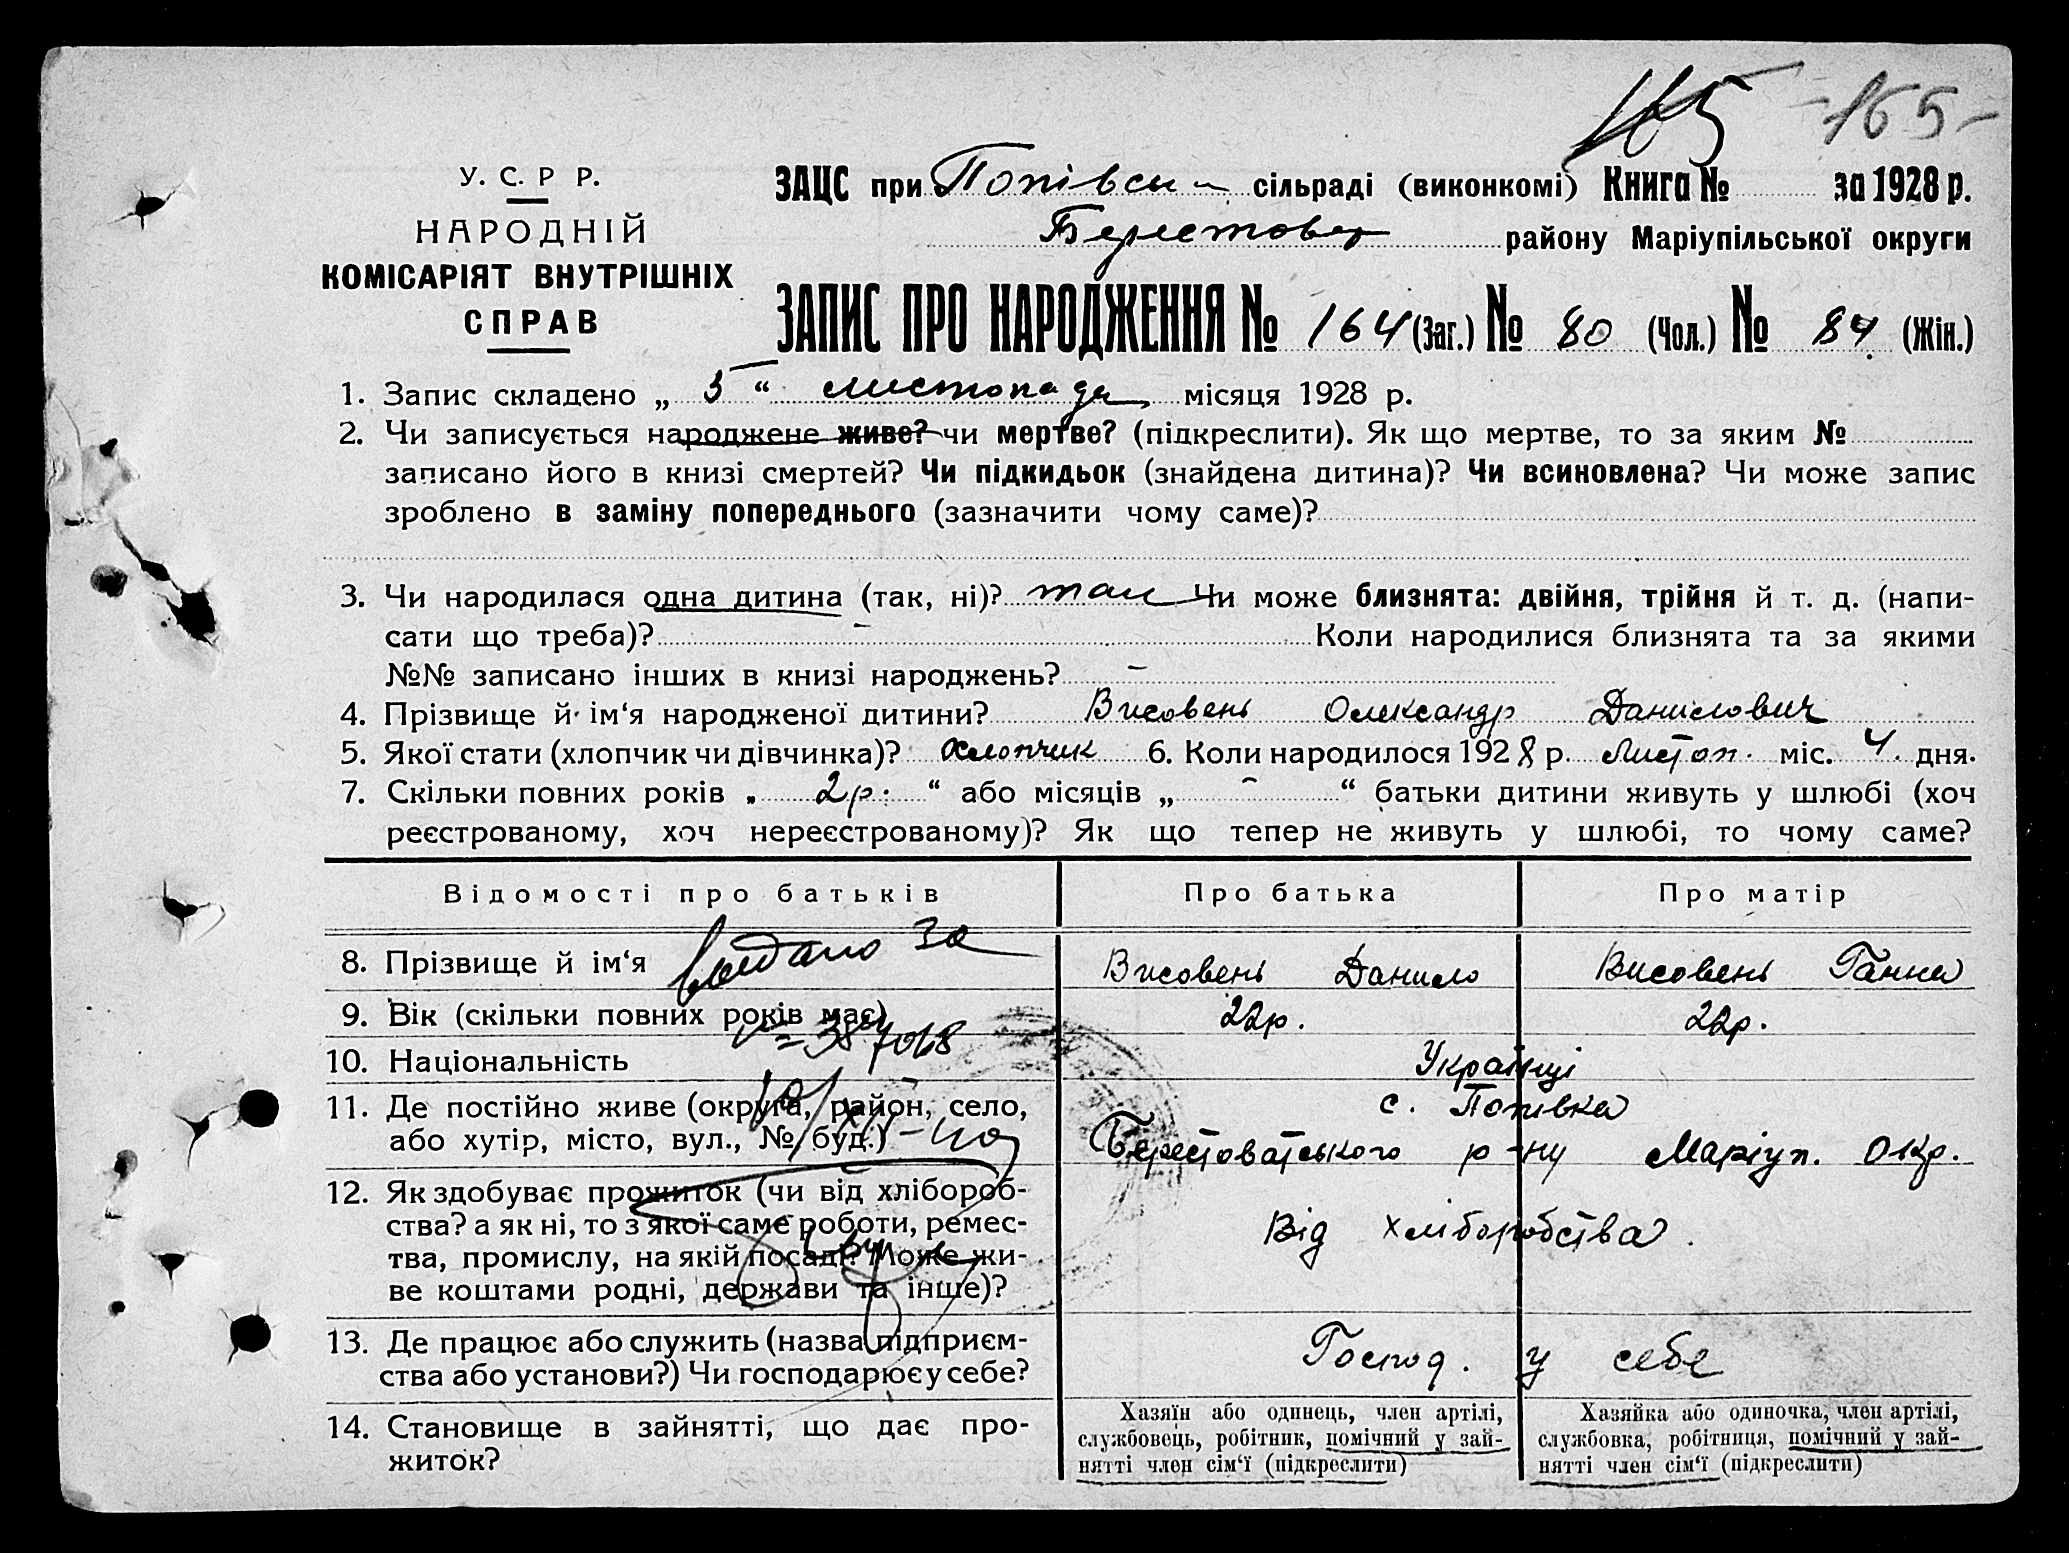 165 -165-
У. С. Р Р.
НАРОДНІЙ
КОМІСАРІЯТ ВНУТРІШНІХ
СПРАВ
ЗАЦС при Попівськ сільраді (виконкомі) Книга № за 1928 р.
Берестовет району Маріупільської округи
ЗАПИС ПРО НАРОДЖЕННЯ № 164 (Заг.) № 80 (Чол.) № 84 (Жін.)
1. Запис складено „ 5 “ листопада місяця 1928 р.
2. Чи записується народжене живе? чи мертве? (підкреслити). Як що мертве, то за яким №
записано його в книзі смертей? Чи підкидьок (знайдена дитина)? Чи всиновлена? Чи може запис
зроблено в заміну попереднього (зазначити чому саме)?
3. Чи народилася одна дитина (так, ні)? так Чи може близнята: двійня, трійня й т. д. (напи-
сати що треба)? – Коли народилися близнята та за якими
№№ записано інших в книзі народжень? –
4. Прізвище й ім‘я народженої дитини? Висовень Олександр Данилович
5. Якої стати (хлопчик чи дівчинка)? Хлопчик 6. Коли народилося 1928 р. Листоп. міс. 4. дня.
7. Скільки повних років „ 2 р. “ або місяців „ – “ батьки дитини живуть у шлюбі (хоч
реєстрованому, хоч нереєстрованому)? Як що тепер не живуть у шлюбі, то чому саме?
Відомості про батьків Про батька Про матір
8. Прізвище й ім‘я Висовень Данило Висовень Ганна
видано за
9. Вік (скільки повних років має) 22р. 22р.
10. Національність Українці
11. Де постійно живе (округа, район, село,
або хутір, місто, вул., № буд.)
с. Попівка
Берестоватського р-ну Маріуп. окр.
12. Як здобуває прожиток (чи від хлібороб-
ства? а як ні, то з якої саме роботи, ремес-
тва, промислу, на якій посаді? Може жи-
ве коштами родні, держави та інше)?
Від хліборобства.
13. Де працює або служить (назва підприєм-
ства або установи?) Чи господарює у себе?
Господ. у себе
14. Становище в зайнятті, що дає про-
житок?
Хазяїн або одинець, член артілі,
службовець, робітник, помічний у зай-
нятті член сім‘ї (підкреслити)
Хазяйка або одиночка, член артілі,
службовка, робітниця, помічний у зай-
нятті член сім‘ї (підкреслити)